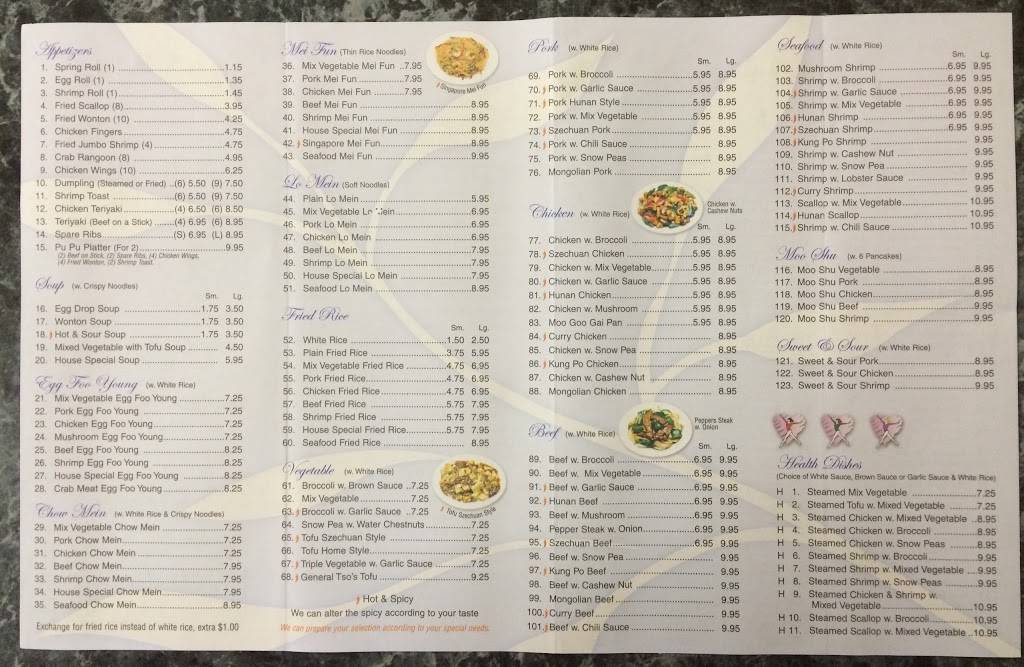 Appetizers
1. Spring Roll (1) 1.15
2. Egg Roll (1) 1.35
3. Shrimp Roll (1) 1.45
4. Fried Scallop (8) 3.95
5. Fried Wonton (10) 4.25
6. Chicken Fingers 4.75
7. Fried Jumbo Shrimp (4) 4.75
8. Crab Rangoon (8) 4.95
9. Chicken Wings (10) 6.25
10. Dumpling (Steamed or Fried) ..(6) 5.50 (9) 7.50
11. Shrimp Toast (6) 5.50 (9) 7.50
12. Chicken Teriyaki (4) 6.50 (6) 8.50
13. Teriyaki (Beef on a Stick) (4) 6.95 (6) 8.95
14. Spare Ribs (S) 6.95 (L) 8.95
15. Pu Pu Platter (For 2) 9.95
(2) Beef on Stick, (2) Spare Ribs, (4) Chicken Wings,
(4) Fried Wonton, (2) Shrimp Toast.
Soup (w. Crispy Noodles)
Sm. Lg.
16. Egg Drop Soup 1.75 3.50
17. Wonton Soup 1.75 3.50
18. Hot & Sour Soup 1.75 3.50
19. Mixed Vegetable with Tofu Soup 4.50
20. House Special Soup 5.95
Egg Foo Young (w. White Rice)
21. Mix Vegetable Egg Foo Young 7.25
22. Pork Egg Foo Young 7.25
23. Chicken Egg Foo Young 7.25
24. Mushroom Egg Foo Young 7.25
25. Beef Egg Foo Young 8.25
26. Shrimp Egg Foo Young 8.25
27. House Special Egg Foo Young 8.25
28. Crab Meat Egg Foo Young 8.25
Chow Mein (w. White Rice & Crispy Noodles)
29. Mix Vegetable Chow Mein 7.25
30. Pork Chow Mein 7.25
31. Chicken Chow Mein 7.25
32. Beef Chow Mein 7.95
33. Shrimp Chow Mein 7.95
34. House Special Chow Mein 7.95
35. Seafood Chow Mein 8.95
Exchange for fried rice instead of white rice, extra $1.00
Mei Fun (Thin Rice Noodles)
36. Mix Vegetable Mei Fun ..7.95
37. Pork Mei Fun 7.95
38. Chicken Mei Fun 7.95
39. Beef Mei Fun 8.95
40. Shrimp Mei Fun 8.95
41. House Special Mei Fun 8.95
42. Singapore Mei Fun 8.95
43. Seafood Mei Fun 9.95
Singapore Mei Fun
Lo Mein (Soft Noodles)
44. Plain Lo Mein 5.95
45. Mix Vegetable Lo Mein 7.95
46. Pork Lo Mein 7.95
47. Chicken Lo Mein 7.95
48. Beef Lo Mein 7.95
49. Shrimp Lo Mein 7.95
50. House Special Lo Mein 7.95
51. Seafood Lo Mein 8.95
Fried Rice
Sm. Lg.
52. White Rice 1.50 2.50
53. Plain Fried Rice 3.75 5.95
54. Mix Vegetable Fried Rice 4.75 6.95
55. Pork Fried Rice 4.75 6.95
56. Chicken Fried Rice 4.75 6.95
57. Beef Fried Rice 5.75 7.95
58. Shrimp Fried Rice 5.75 7.95
59. House Special Fried Rice 5.75 7.95
60. Seafood Fried Rice 8.95
Vegetable (w. White Rice)
61. Broccoli w. Brown Sauce ..7.25
62. Mix Vegetable 7.25
63. Broccoli w. Garlic Sauce ..7.25
64. Snow Pea w. Water Chestnuts 7.25
65. Tofu Szechuan Style 7.25
66. Tofu Home Style 7.25
67. Triple Vegetable w. Garlic Sauce 7.25
68. General Tso's Tofu 9.25
Tofu Szechuan Style
Hot & Spicy
We can alter the spicy according to your taste
We can prepare your selection according to your special needs.
Pork (w. White Rice)
Sm. Lg.
69. Pork w. Broccoli 5.95 8.95
70. Pork w. Garlic Sauce 5.95 8.95
71. Pork Hunan Style 5.95 8.95
72. Pork w. Mix Vegetable 5.95 8.95
73. Szechuan Pork 5.95 8.95
74. Pork w. Chili Sauce 8.95
75. Pork w. Snow Peas 8.95
76. Mongolian Pork 8.95
Chicken (w. White Rice)
Chicken w. Cashew Nuts
Sm. Lg.
77. Chicken w. Broccoli 5.95 8.95
78. Szechuan Chicken 5.95 8.95
79. Chicken w. Mix Vegetable 5.95 8.95
80. Chicken w. Garlic Sauce 5.95 8.95
81. Hunan Chicken 5.95 8.95
82. Chicken w. Mushroom 5.95 8.95
83. Moo Goo Gai Pan 5.95 8.95
84. Curry Chicken 8.95
85. Chicken w. Snow Pea 8.95
86. Kung Po Chicken 8.95
87. Chicken w. Cashew Nut 8.95
88. Mongolian Chicken 8.95
Beef (w. White Rice)
Peppers Steak w. Onion
Sm. Lg.
89. Beef w. Broccoli 6.95 9.95
90. Beef w. Mix Vegetable 6.95 9.95
91. Beef w. Garlic Sauce 6.95 9.95
92. Hunan Beef 6.95 9.95
93. Beef w. Mushroom 6.95 9.95
94. Pepper Steak w. Onion 6.95 9.95
95. Szechuan Beef 6.95 9.95
96. Beef w. Snow Pea 9.95
97. Kung Po Beef 9.95
98. Beef w. Cashew Nut 9.95
99. Mongolian Beef 9.95
100. Curry Beef 9.95
101. Beef w. Chili Sauce 9.95
Seafood (w. White Rice)
Sm. Lg.
102. Mushroom Shrimp 6.95 9.95
103. Shrimp w. Broccoli 6.95 9.95
104. Shrimp w. Garlic Sauce 6.95 9.95
105. Shrimp w. Mix Vegetable 6.95 9.95
106. Hunan Shrimp 6.95 9.95
107. Szechuan Shrimp 6.95 9.95
108. Kung Po Shrimp 9.95
109. Shrimp w. Cashew Nut 9.95
110. Shrimp w. Snow Pea 9.95
111. Shrimp w. Lobster Sauce 9.95
112. Curry Shrimp 9.95
113. Scallop w. Mix Vegetable 10.95
114. Hunan Scallop 10.95
115. Shrimp w. Chili Sauce 10.95
Moo Shu (w. 6 Pancakes)
116. Moo Shu Vegetable 8.95
117. Moo Shu Pork 8.95
118. Moo Shu Chicken 8.95
119. Moo Shu Beef 9.95
120. Moo Shu Shrimp 9.95
Sweet & Sour (w. White Rice)
121. Sweet & Sour Pork 8.95
122. Sweet & Sour Chicken 8.95
123. Sweet & Sour Shrimp 9.95
Health Dishes
(Choice of White Sauce, Brown Sauce or Garlic Sauce & White Rice)
H 1. Steamed Mix Vegetable 7.25
H 2. Steamed Tofu w. Mixed Vegetable 7.25
H 3. Steamed Chicken w. Mixed Vegetable ..8.95
H 4. Steamed Chicken w. Broccoli 8.95
H 5. Steamed Chicken w. Snow Peas 8.95
H 6. Steamed Shrimp w. Broccoli 9.95
H 7. Steamed Shrimp w. Mixed Vegetable 9.95
H 8. Steamed Shrimp w. Snow Peas 9.95
H 9. Steamed Chicken & Shrimp w.
Mixed Vegetable 10.95
H 10. Steamed Scallop w. Broccoli 10.95
H 11. Steamed Scallop w. Mixed Vegetable ..10.95